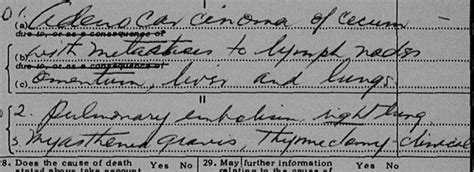 (a) Adenocarcinoma of cecum -
due to, or as a consequence of
(b) with metastases to lymph nodes
due to, or as a consequence of
(c) omentum, liver and lungs.
II
2. Pulmonary embolism, right lung
3. Myasthenia gravis, Thymectomy - clinical
28. Does the cause of death Yes No 29. May further information Yes No
stated above take account relating to the cause of